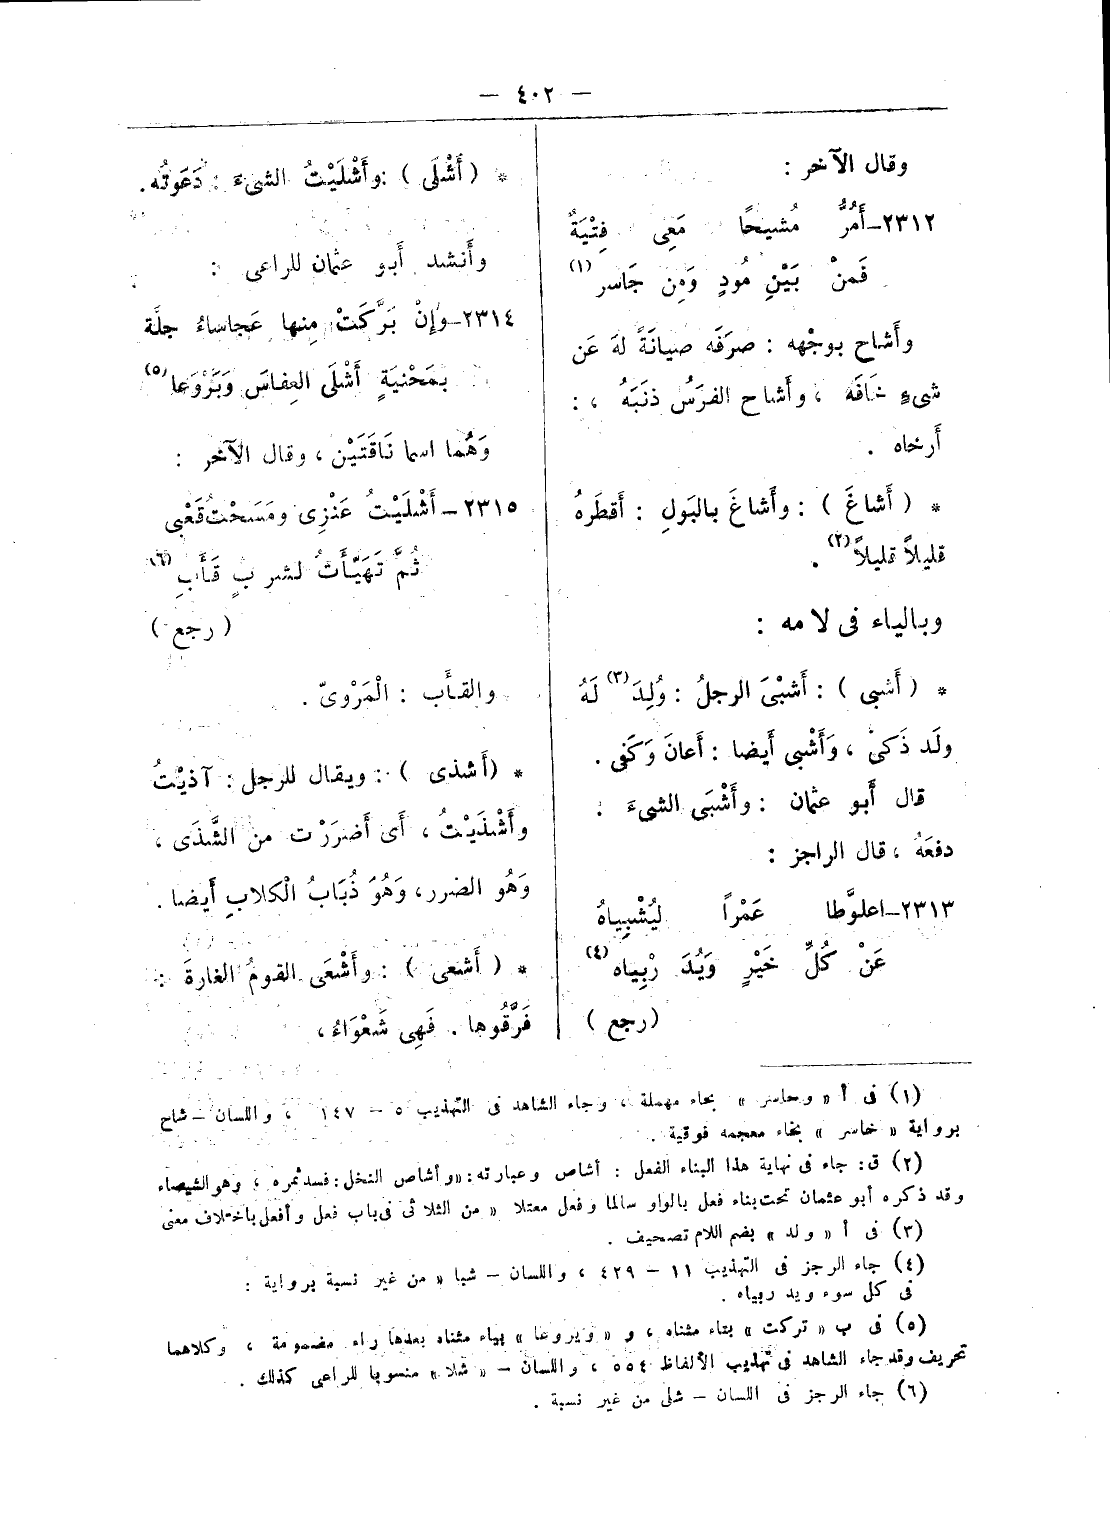 — ٤٠٢ —
وقال الآخر :
٢٣١٢–أَمُرُّ مُشيحًا مَعِى فِتْيَةٌ
فَمنْ بَيْنِ مُودٍ وَمِن جَاسر (١)
وأَشاح بوجْهه : صرَفَه صيانَةً لهَ عَن
شىءٍ خَافَه ، وأَشاح الفرَسُ ذنَبَهُ ، :
أَرخاه .
* ( أَشاغَ ) : وأَشاغَ بالبَولِ : أَقطَرهُ
قليلاً قليلاً (٢) .
وبالياء فى لامه :
* ( أَشبى ) : أَشبْىَ الرجلُ : وُلِدَ (٣) لَهُ
ولَد ذَكىٌ ، وَأَشْبى أَيضا : أَعانَ وَكَفى .
قال أَبو عثمان : وأَشْبَى الشىءَ :
دفعَهُ ، قال الراجز :
٢٣١٣–اعلوَّطا عَمْراً ليُشْبِياهُ
عَنْ كُلِّ خَيْرٍ وَيُدَ رْبِياه (٤)
(رجع )
* ( أَشْلَى ) :وأَشْلَيْتُ الشىءَ : دَعَوتُه.
وأَنشد أَبو عثمان للراعى :
٢٣١٤–وإنْ بَرَّكَتْ مِنها عَجاساءُ جلَّة
بمَحْنيَةٍ أَشْلَى العِفاسَ وَبَرْوَعا (٥)
وَهُما اسما نَاقَتَيْن ، وقال الآخر :
٢٣١٥ – أَشْلَيْتُ عَنْزِى ومَسَحْتُ قَعْبى
ثُمَّ تَهَيَّأَتُ لشربٍ قَأَبِ (٦)
( رجع )
والقأَب : الْمَرْوىّ .
* (أَشذى ) : ويقال للرجل : آذيْتُ
وأَشْذَيْتُ ، أَى أَضرَرْت منَ الشَّذَى ،
وَهُو الضرر، وَهُوَ ذُبَابُ الْكلابِ أَيضا .
* ( أَشعى ) : وأَشْعَى القومُ الغارةَ :
فَرَّقُوها . فَهِى شَعْوَاءُ ،
(١) فى أ « وحاسر » بحاء مهملة ، وجاء الشاهد فى التهذيب ٥ – ١٤٧ ، واللسان – شاح
برواية « خاسر » بخاء معجمه فوقية .
(٢) ق: جاء فى نهاية هذا البناء الفعل : أشاص وعبارته: «وأشاص النخل: فسد ثمره ، وهو الشيصاء
وقد ذكره أبو عثمان تحت بناء فعل بالواو سالما وفعل معتلا « من الثلاثى فى باب فعل وأفعل باختلاف معنى
(٣) فى أ « ولد » بضم اللام تصحيف .
(٤) جاء الرجز فى التهذيب ١١ – ٤٢٩ ، واللسان – شبا « من غير نسبة برواية :
فى كل سوء ويد ربياه .
(٥) فى ب « تركت » بتاء مثناه ، و « ويروعا » بياء مثناه بعدها راء مضمومة ، وكلاهما
تحريف وقد جاء الشاهد فى تهذيب الألفاظ ٥٥٤ ، واللسان – « شلا » منسوبا للراعى كذلك .
(٦) جاء الرجز فى اللسان – شلى من غير نسبة .